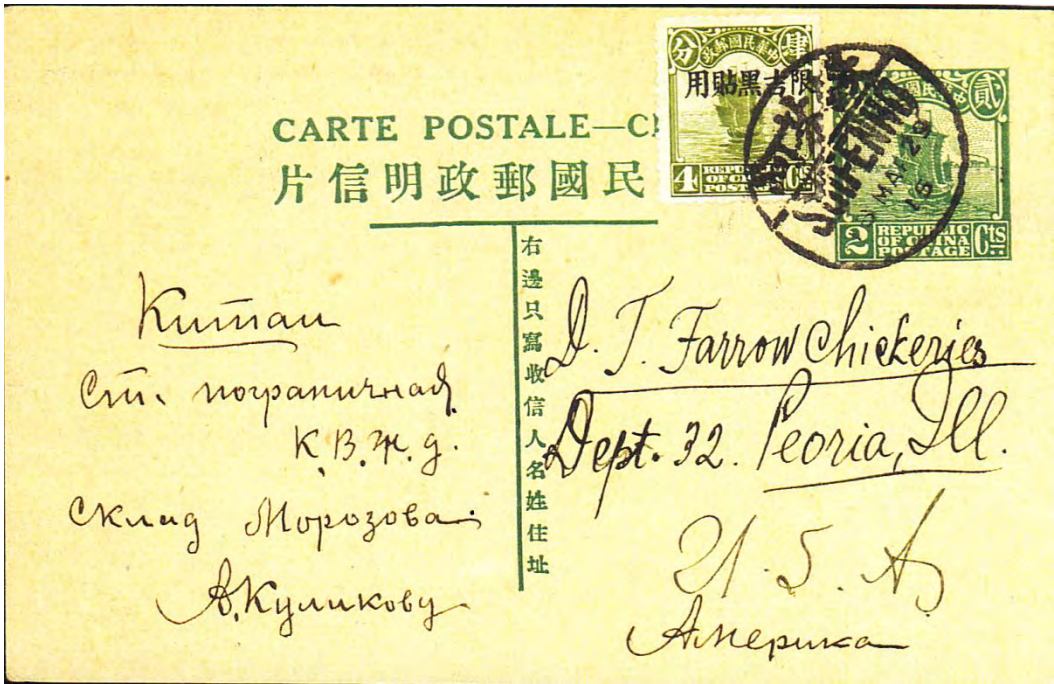 CARTE POSTALE—C
片信明政郵國民
分 政郵國民華中 肆
用貼黑吉限
4 REPUBLIC OF CHINA POSTAGE Cts
貳
2 REPUBLIC OF CHINA POSTAGE Cts
SUIFENHO
MAR 29
16
右邊只寫收信人名姓住址
Китаи
Ст. пограничная
К.В.ж.д.
Склад Морозова
А.Куликову
D. T. Farrow Chickeries
Dept. 32. Peoria, Ill.
U. S. A
Америка